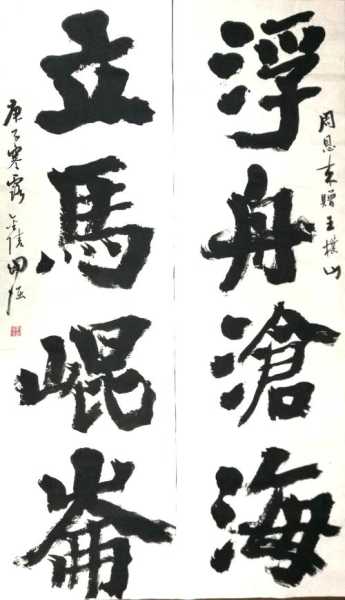 浮舟滄海
周恩来贈王樸山
立馬崐崙
庚子寒露
金陵田